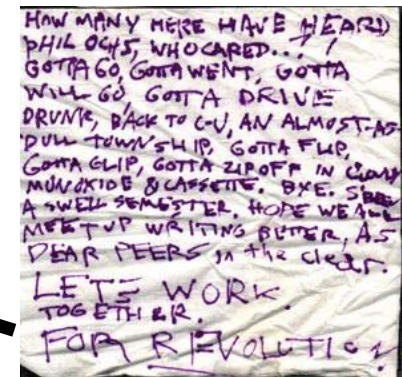 HOW MANY HERE HAVE HEARD
PHIL OCHS, WHO CARED...?
GOTTA GO, GOTTA WENT, GOTTA
WILL GO, GOTTA DRIVE
DRUNK, BACK TO C-U, AN ALMOST-AS
DULL TOWNSHIP, GOTTA FLIP,
GOTTA GLIP, GOTTA ZIP OFF IN
MONOXIDE & CASSETTE. BYE. S'BEEN
A SWELL SEMESTER. HOPE WE ALL
MEET UP WRITING BETTER, AS
DEAR PEERS in the clear.
LETS WORK.
TOGETHER.
FOR REVOLUTION